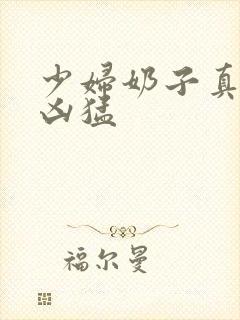 少婦奶子真
凶猛
福尔曼